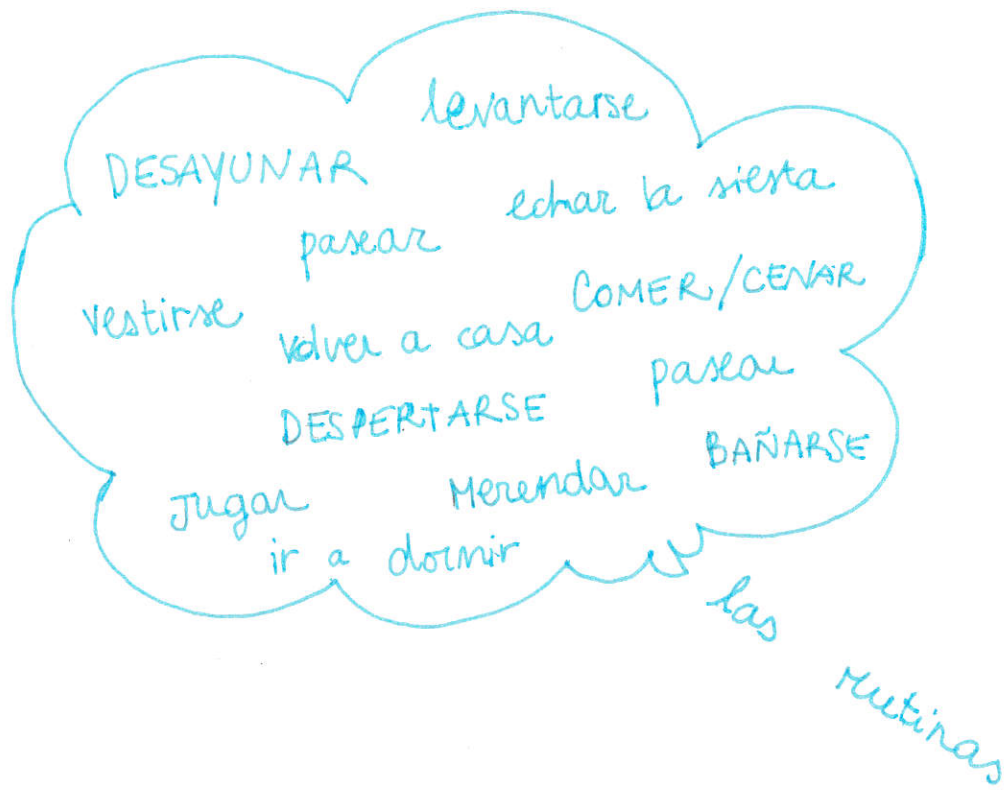 levantarse
DESAYUNAR
echar la siesta
pasear
COMER/CENAR
vestirse
volver a casa
pasear
DESPERTARSE
BAÑARSE
Jugar
Merendar
ir a dormir
las
rutinas